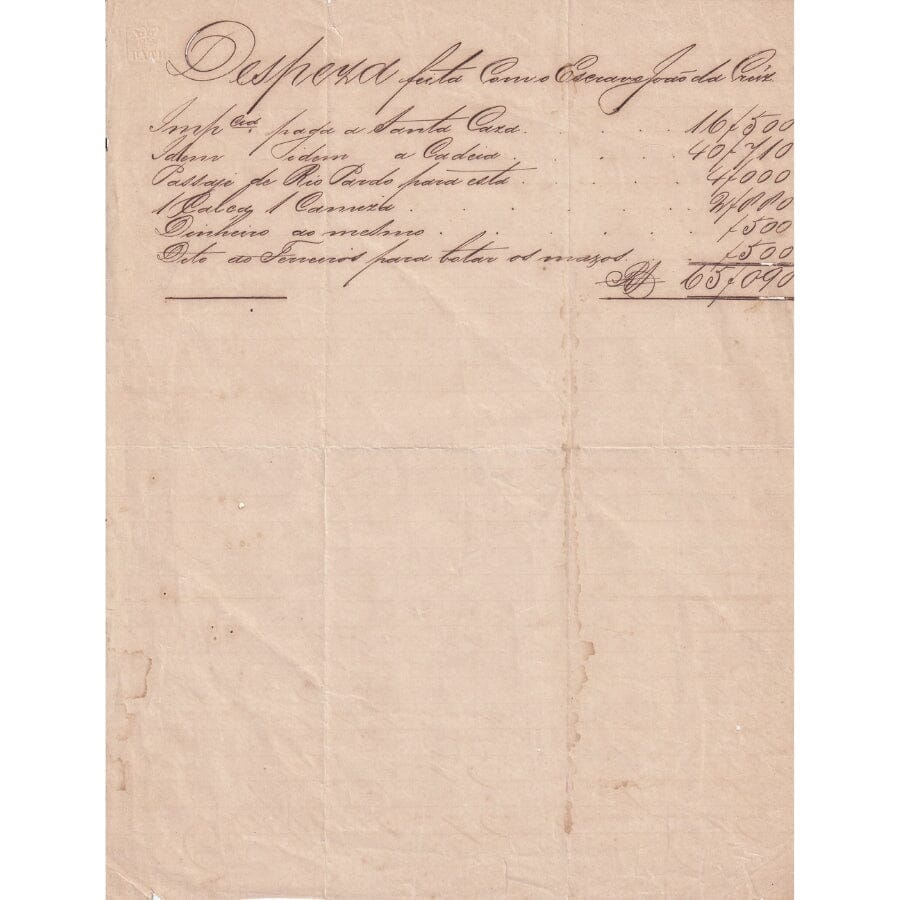 Despeza feita Com o Escravo João da Crúz
Imp.cia paga a Santa Caza. 16$500
Idem Idem a Cadeia. 40$710
Passaje de Rio Pardo para esta 4$000
1 Calça, 1 Cameza. 2$880
Dinheiro ao mesmo. $500
Dito ao Ferreiros para botar os mazos. $500
Rs 65$090